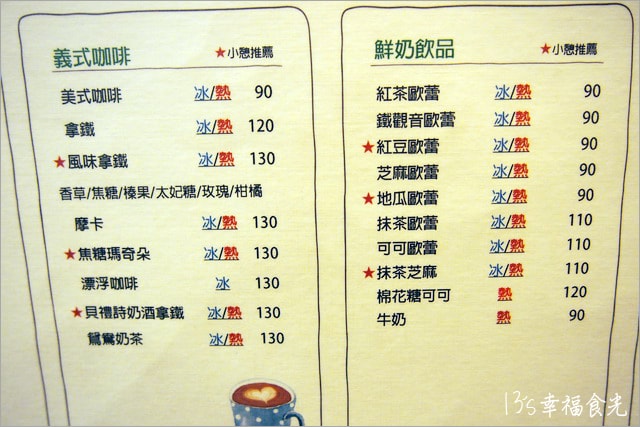 義式咖啡 ★小憩推薦
美式咖啡 冰/熱 90
拿鐵 冰/熱 120
★風味拿鐵 冰/熱 130
香草/焦糖/榛果/太妃糖/玫瑰/柑橘
摩卡 冰/熱 130
★焦糖瑪奇朵 冰/熱 130
漂浮咖啡 冰 130
★貝禮詩奶酒拿鐵 冰/熱 130
鴛鴦奶茶 冰/熱 130
鮮奶飲品 ★小憩推薦
紅茶歐蕾 冰/熱 90
鐵觀音歐蕾 冰/熱 90
★紅豆歐蕾 冰/熱 90
芝麻歐蕾 冰/熱 90
★地瓜歐蕾 冰/熱 90
抹茶歐蕾 冰/熱 110
可可歐蕾 冰/熱 110
★抹茶芝麻 冰/熱 110
棉花糖可可 熱 120
牛奶 熱 90
13's幸福食光